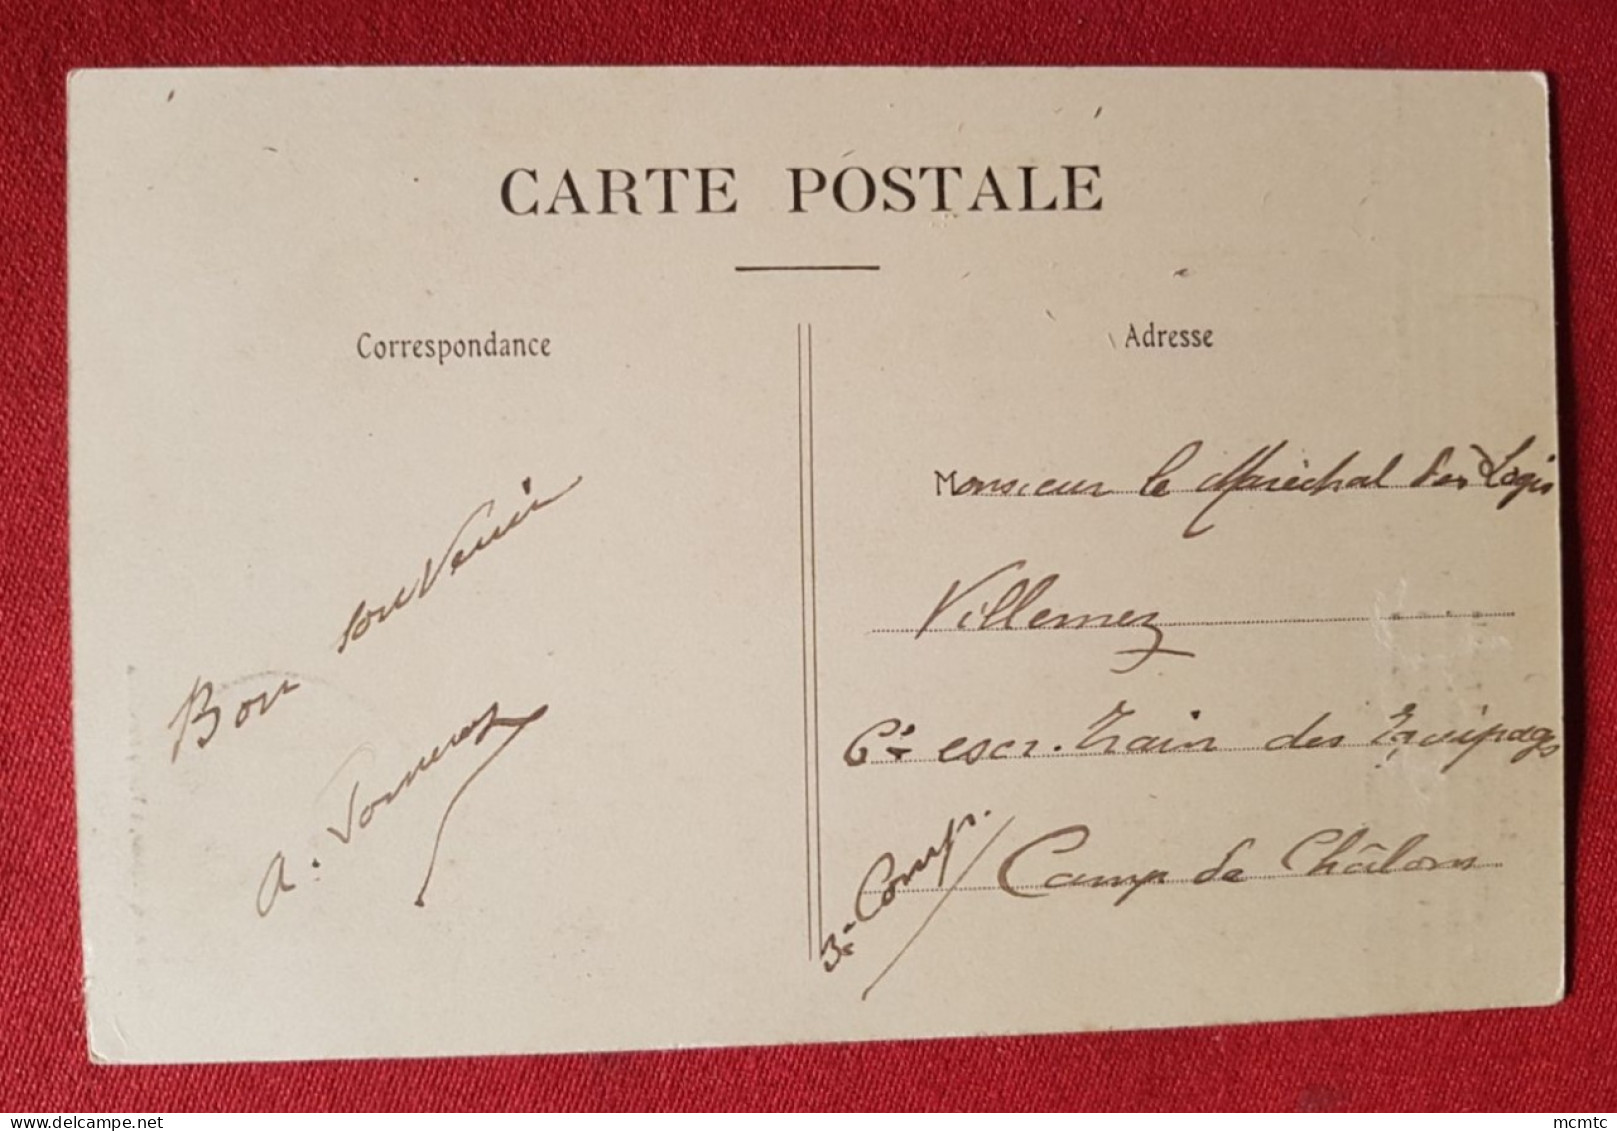 CARTE POSTALE
Correspondance
Bon souvenir
A.
Adresse
Monsieur le Maréchal des Logis
Villemez
6e escr. Train des Equipages
3e Comp.
Camp de Châlons
mcmtc